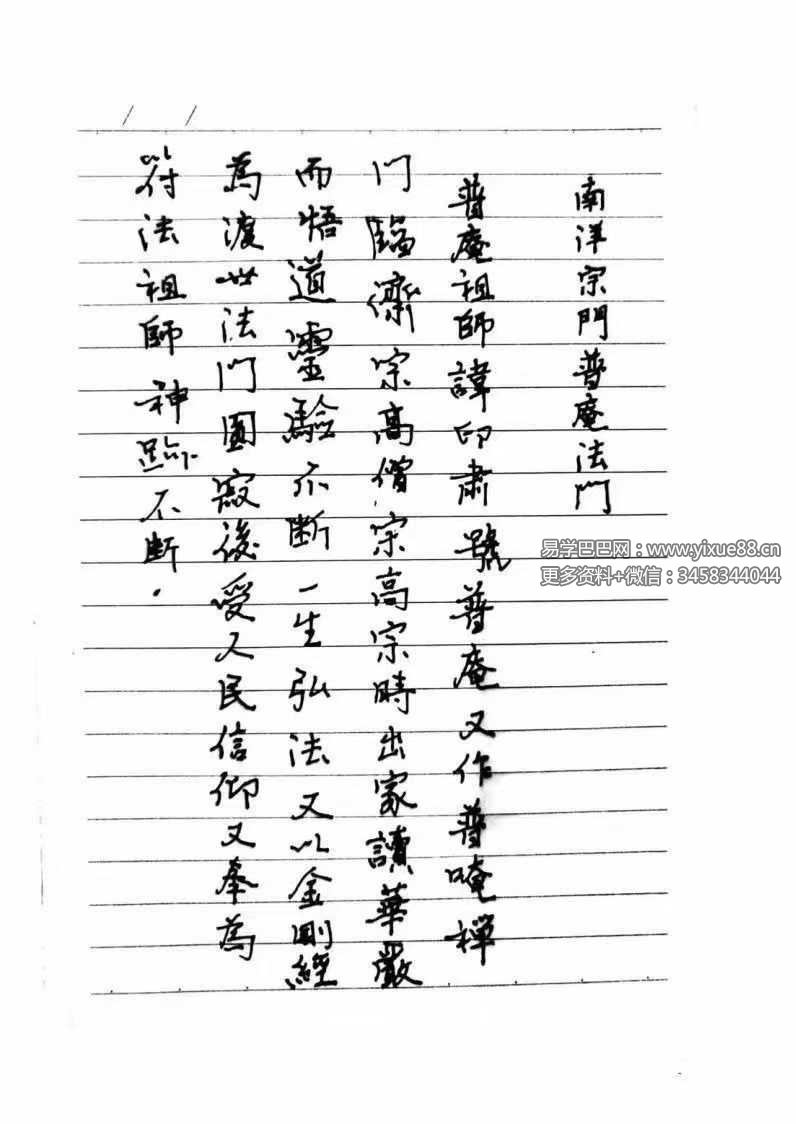 南洋宗門普庵法門
普庵祖師諱印肅號普庵又作普唵禪
門臨濟宗高僧宗高宗時出家讀華嚴
而悟道靈驗不斷一生弘法又以金剛經
為渡世法門圓寂後受人民信仰又奉為
符法祖師神跡不斷.
易学巴巴网：www.yixue88.cn
更多资料+微信：3458344044